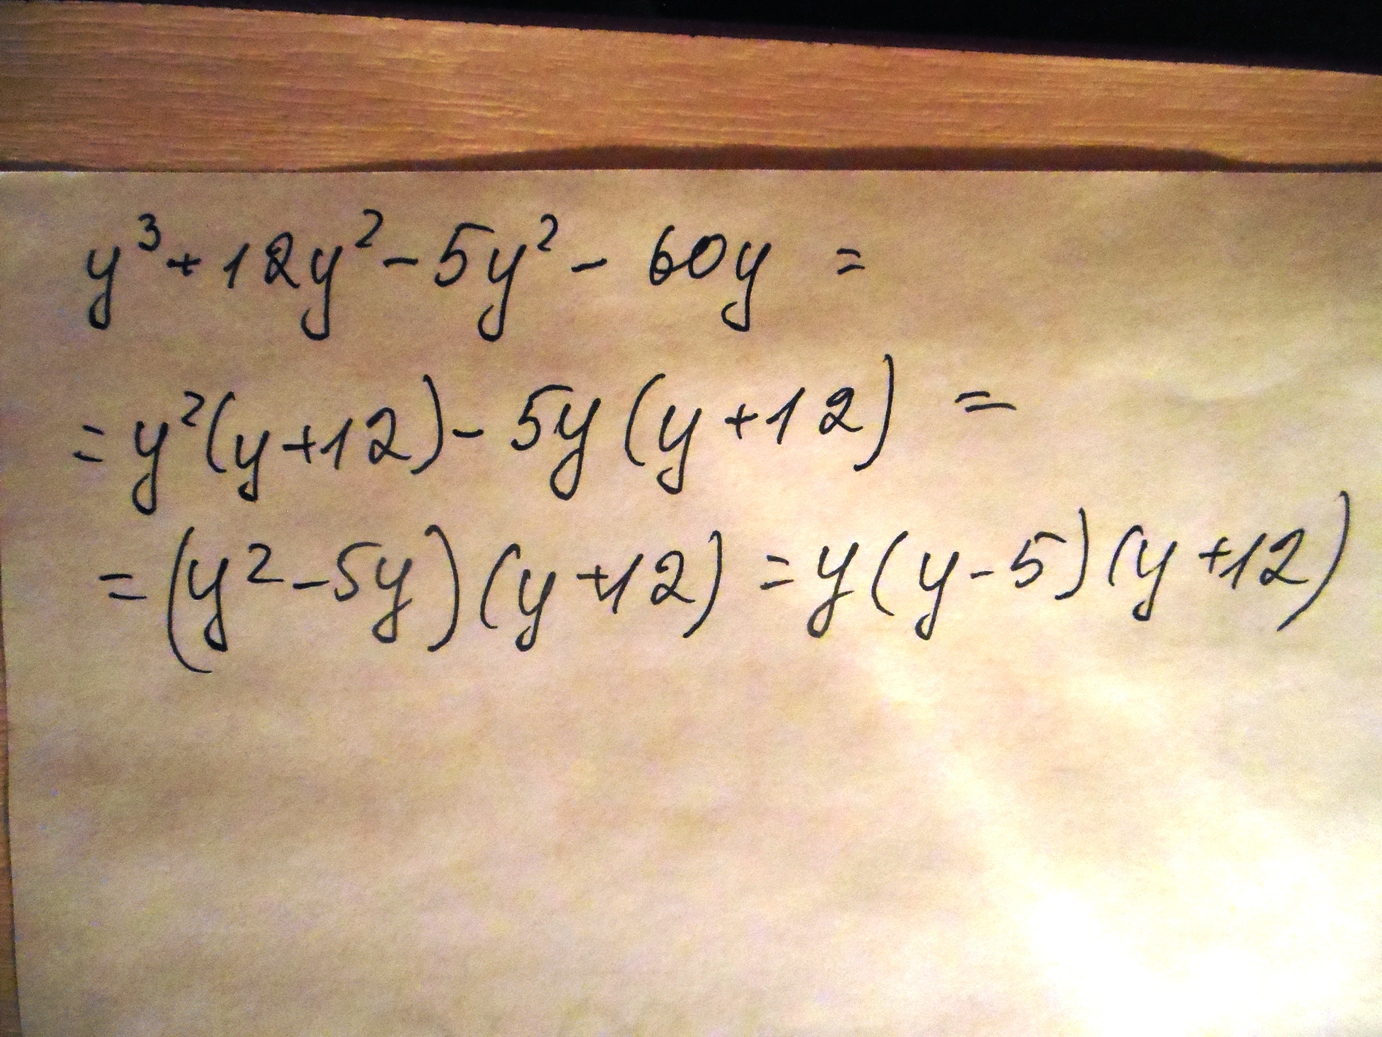 y³+12y²-5y²-60y =
= y²(y+12)-5y(y+12) =
= (y²-5y)(y+12) = y(y-5)(y+12)